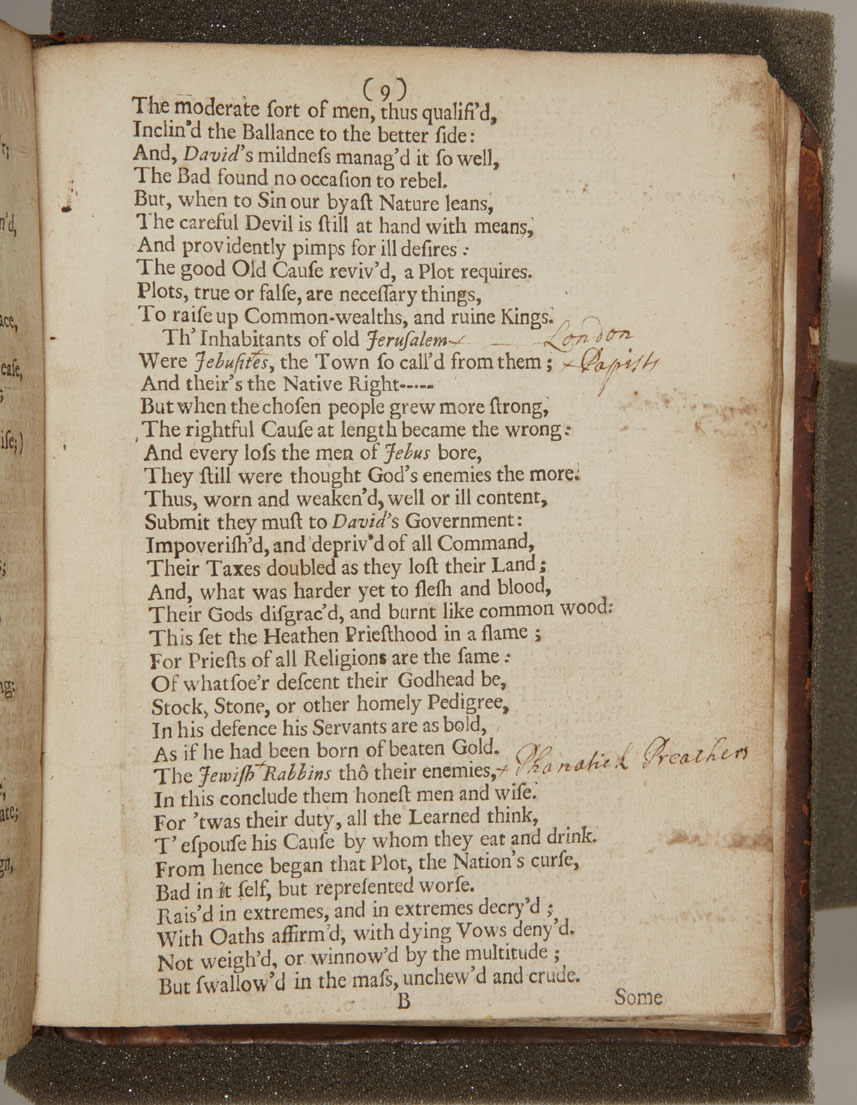 (9)
The moderate ſort of men, thus qualifi'd,
Inclin'd the Ballance to the better ſide:
And, David's mildneſs manag'd it ſo well,
The Bad found no occaſion to rebel.
But, when to Sin our byaſt Nature leans,
The careful Devil is ſtill at hand with means,
And providently pimps for ill deſires :
The good Old Cauſe reviv'd, a Plot requires.
Plots, true or falſe, are neceſſary things,
To raiſe up Common-wealths, and ruine Kings.
Th' Inhabitants of old Jeruſalem London
Were Jebuſites, the Town ſo call'd from them ; Papiſts
And their's the Native Right-----
But when the choſen people grew more ſtrong,
The rightful Cauſe at length became the wrong:
And every loſs the men of Jebus bore,
They ſtill were thought God's enemies the more.
Thus, worn and weaken'd, well or ill content,
Submit they muſt to David's Government:
Impoveriſh'd, and depriv'd of all Command,
Their Taxes doubled as they loſt their Land ;
And, what was harder yet to fleſh and blood,
Their Gods diſgrac'd, and burnt like common wood:
This ſet the Heathen Prieſthood in a flame ;
For Prieſts of all Religions are the ſame :
Of whatſoe'r deſcent their Godhead be,
Stock, Stone, or other homely Pedigree,
In his defence his Servants are as bold,
As if he had been born of beaten Gold.
The Jewiſh Rabbins thô their enemies, Phanatick Preachers
In this conclude them honeſt men and wiſe.
For 'twas their duty, all the Learned think,
T' eſpouſe his Cauſe by whom they eat and drink.
From hence began that Plot, the Nation's curſe,
Bad in it ſelf, but repreſented worſe.
Rais'd in extremes, and in extremes decry'd ;
With Oaths affirm'd, with dying Vows deny'd.
Not weigh'd, or winnow'd by the multitude ;
But ſwallow'd in the maſs, unchew'd and crude.
B Some